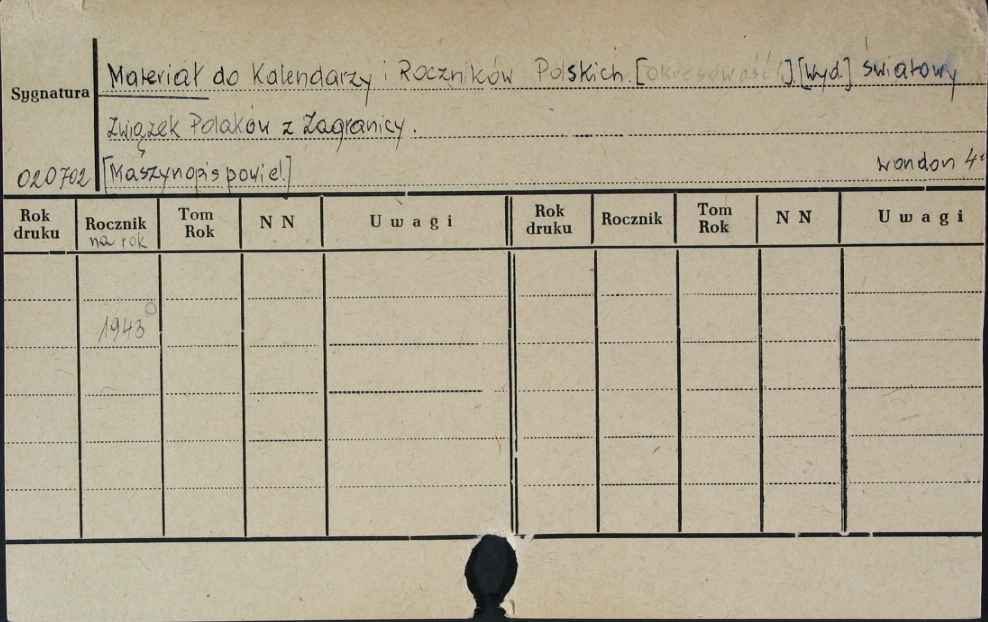 Materiał do Kalendarzy i Roczników Polskich. [okresowość] [Wyd.] Światowy
Sygnatura
Związek Polaków z Zagranicy.
020702 [Maszynopis powiel.] London 4°
Rok druku Rocznik Tom Rok N N Uwagi Rok druku Rocznik Tom Rok N N Uwagi
na rok
1943